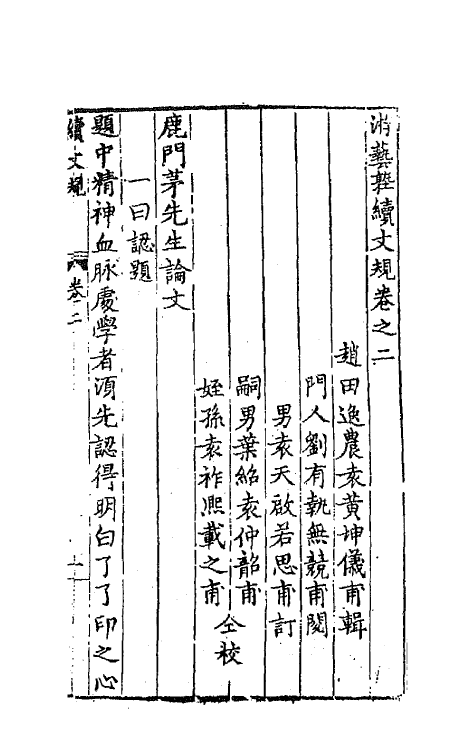 游藝塾續文規卷之二
趙田逸農袁黃坤儀甫輯
門人劉有執無競甫閱
男袁天啟若思甫訂
嗣男葉紹袁仲韶甫
姪孫袁祚凞載之甫
仝校
鹿門茅先生論文
一曰認題
題中精神血脉處學者湏先認得明白了了印之心
續文規
卷二
一